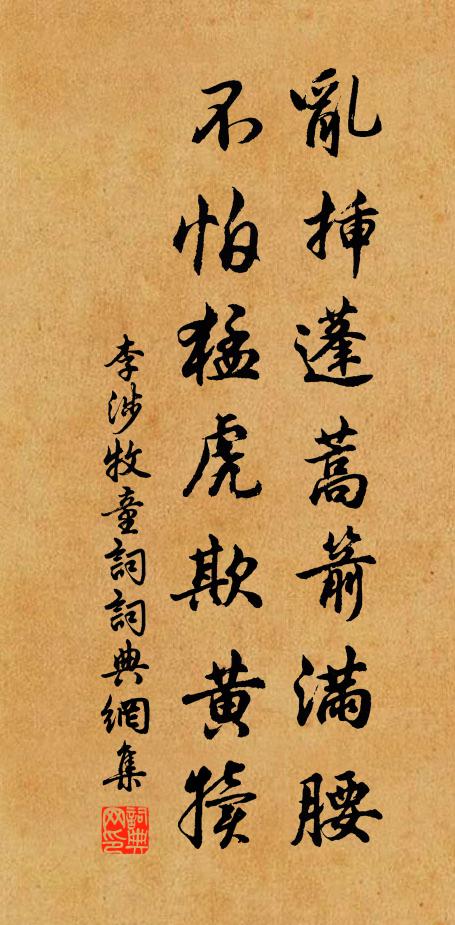 亂挿蓬蒿箭滿腰
不怕猛虎欺黃犢
李涉牧童詞詞典網集
詞典網印